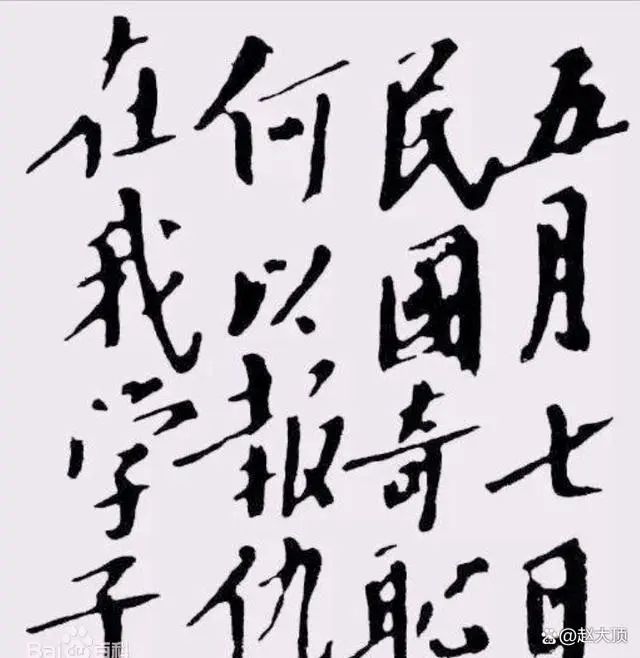 五月七日
民國奇恥
何以报仇
在我学子
Bai百科
@赵大顶